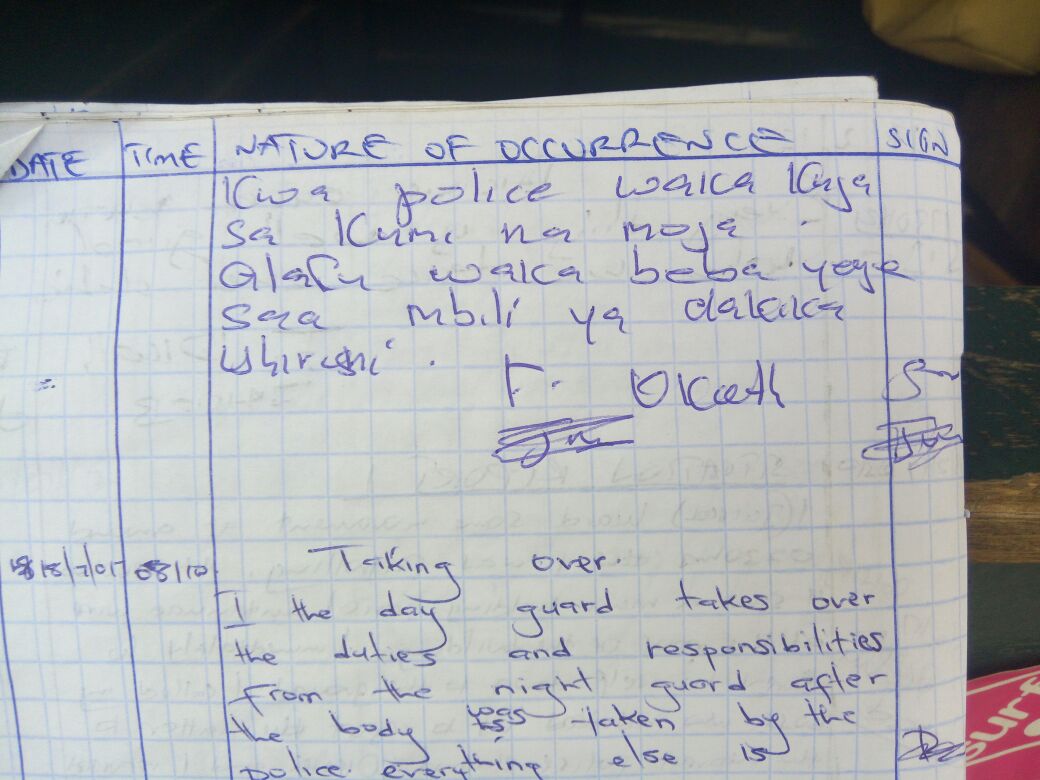 DATE TIME NATURE OF OCCURRENCE SIGN
Kwa police waka Kuja
Sa Kumi na moja.
Olafu waka beba yeye
Saa mbili ya dakika
Ishirini.
F. OKoth
18/7/01 08/10 Taking over.
I the day guard takes over
the duties and responsibilities
from the night guard after
the body was taken by the
police. everything else is
surf